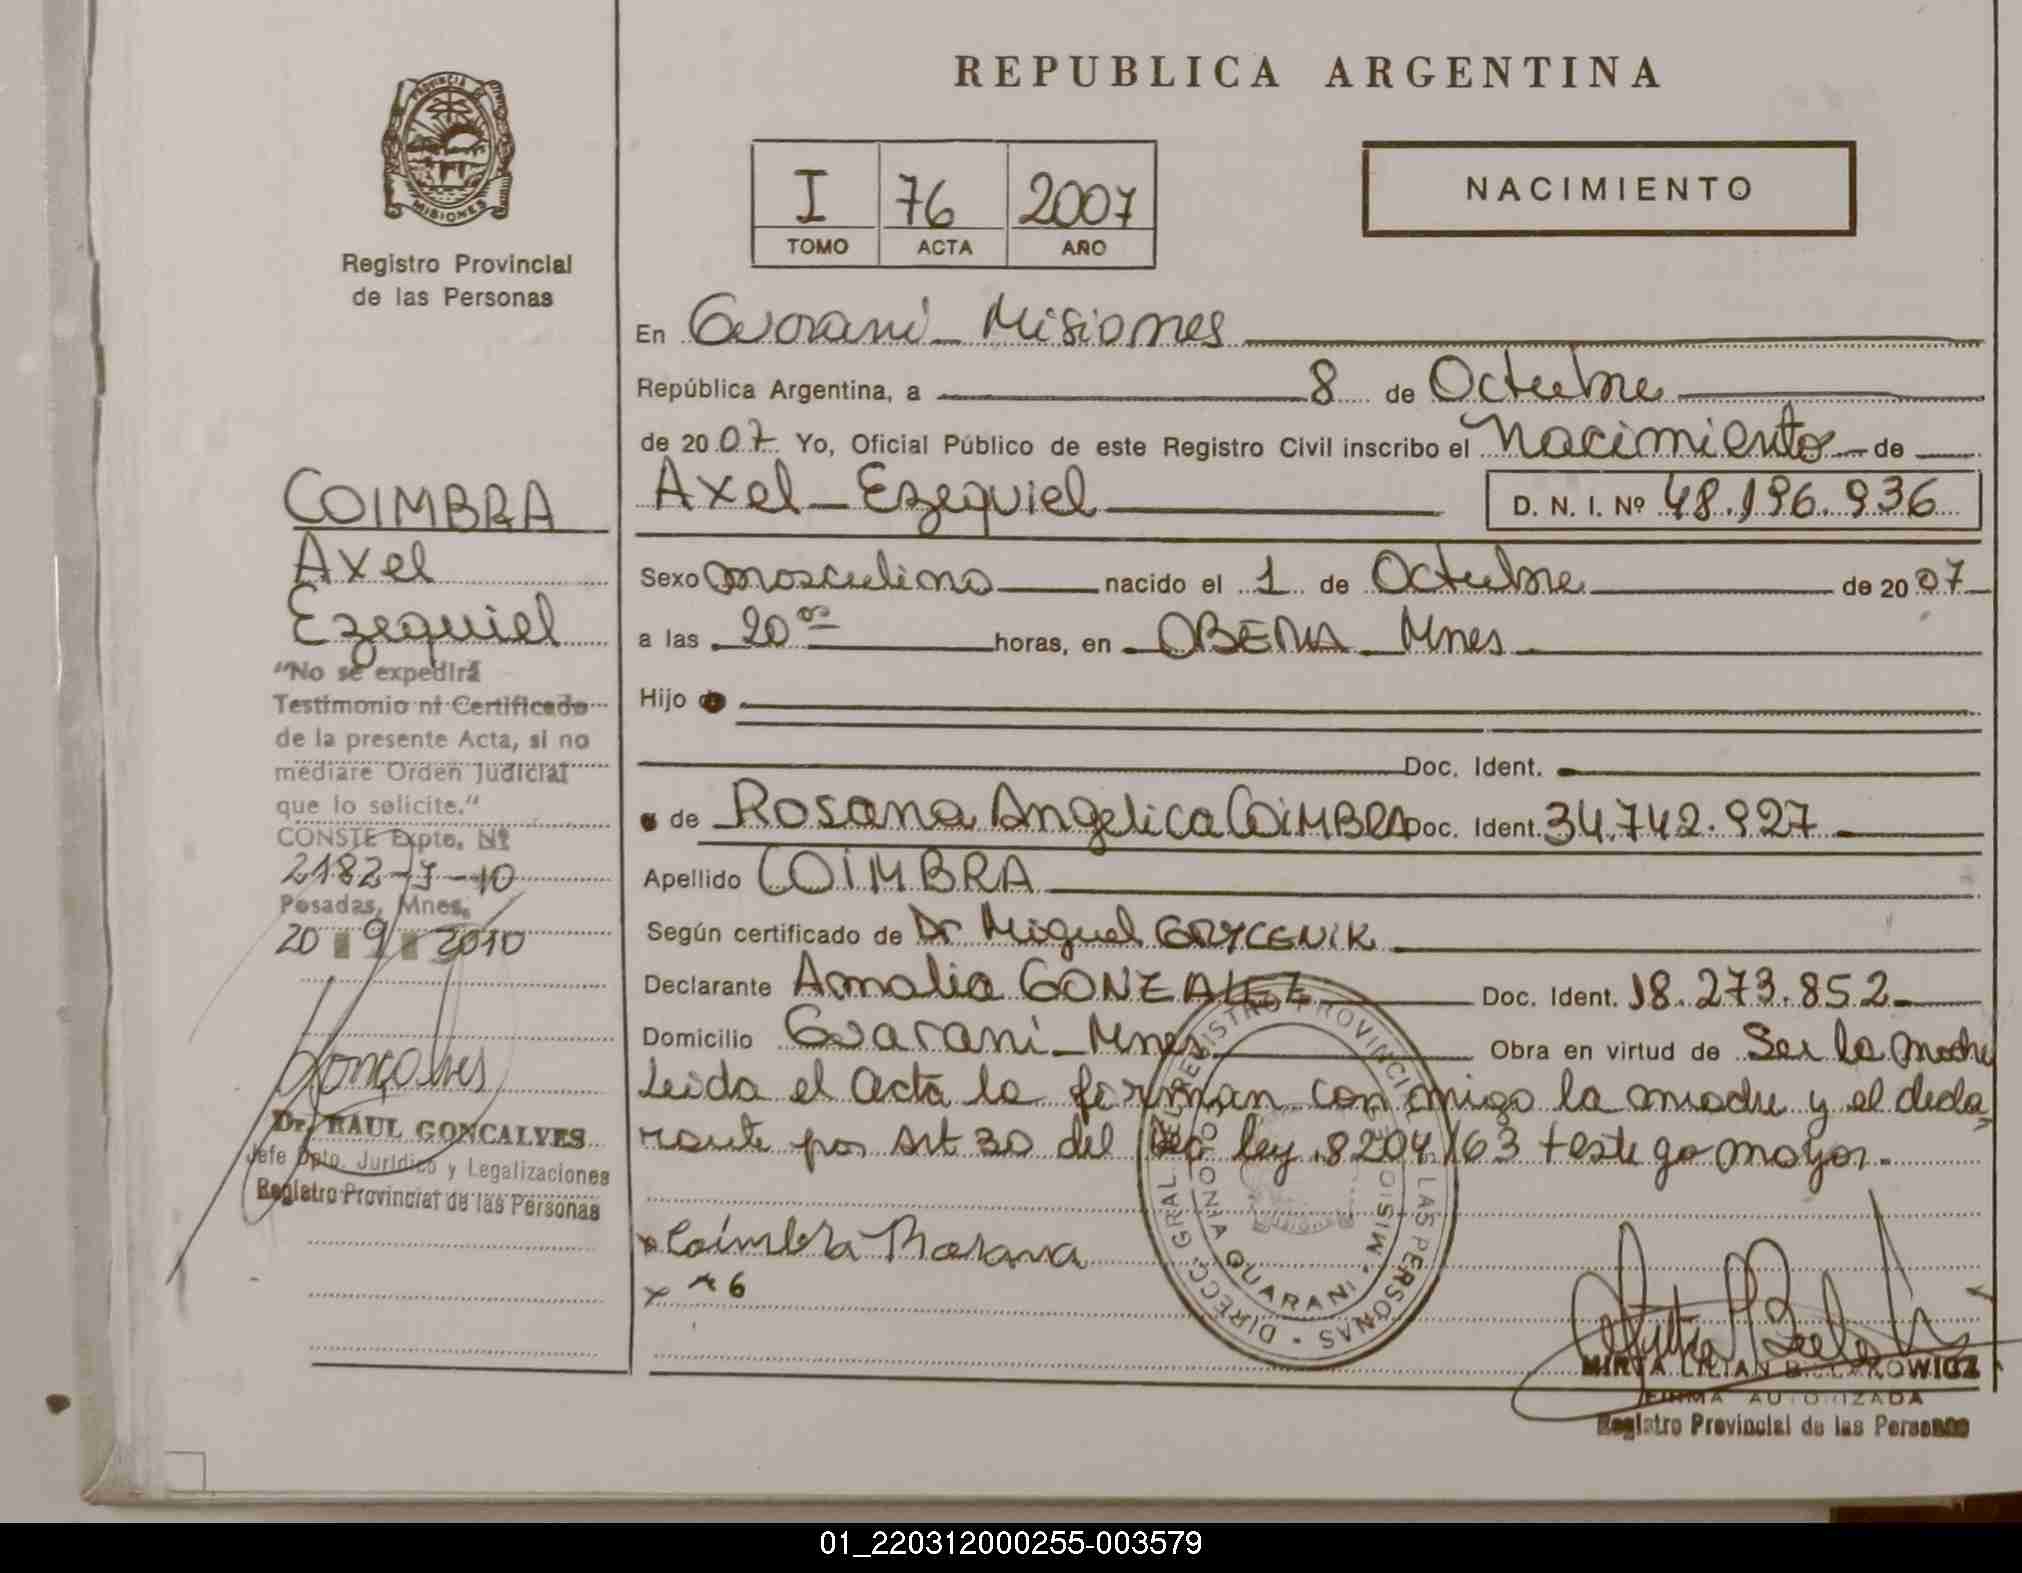 REPUBLICA ARGENTINA
PROVINCIA DE
MISIONES
Registro Provincial
de las Personas
I 76 2007
TOMO ACTA AÑO
NACIMIENTO
En Guarani - Misiones
República Argentina, a 8 de Octubre
de 2007 Yo, Oficial Público de este Registro Civil inscribo el Nacimiento de
Axel - Ezequiel
D. N. I. Nº 48.196.936
Sexo masculino nacido el 1 de Octubre de 2007
a las 20 00 horas, en OBERA Mnes
Hijo
Doc. Ident.
de Rosana Angelica COIMBRA Doc. Ident. 34.742.927
Apellido COIMBRA
Según certificado de Dr Miguel GRYCENIK
Declarante Amalia GONZALEZ Doc. Ident. 18.273.852
Domicilio Guarani - Mnes Obra en virtud de Ser la madre
Leida el acta la firman conmigo la madre y el decla
rante por Art 30 del ley 8204/63 testigo mayor.
x Coimbra Rosana
x
COIMBRA
Axel
Ezequiel
"No se expedirá
Testimonio ni Certificado
de la presente Acta, si no
mediare Orden Judicial
que lo solicite."
CONSTE Expte. Nº
2182-J-10
Posadas, Mnes,
20 9 2010
Gonçalves
Dr. RAUL GONCALVES
Jefe Dpto. Jurídico y Legalizaciones
Registro Provincial de las Personas
DIRECC. GRAL. DEL REGISTRO PROVINCIAL DE LAS PERSONAS
GUARANI MISIONES
MIRTA LILIAN
FIRMA AUTORIZADA
Registro Provincial de las Personas
01_220312000255-003579